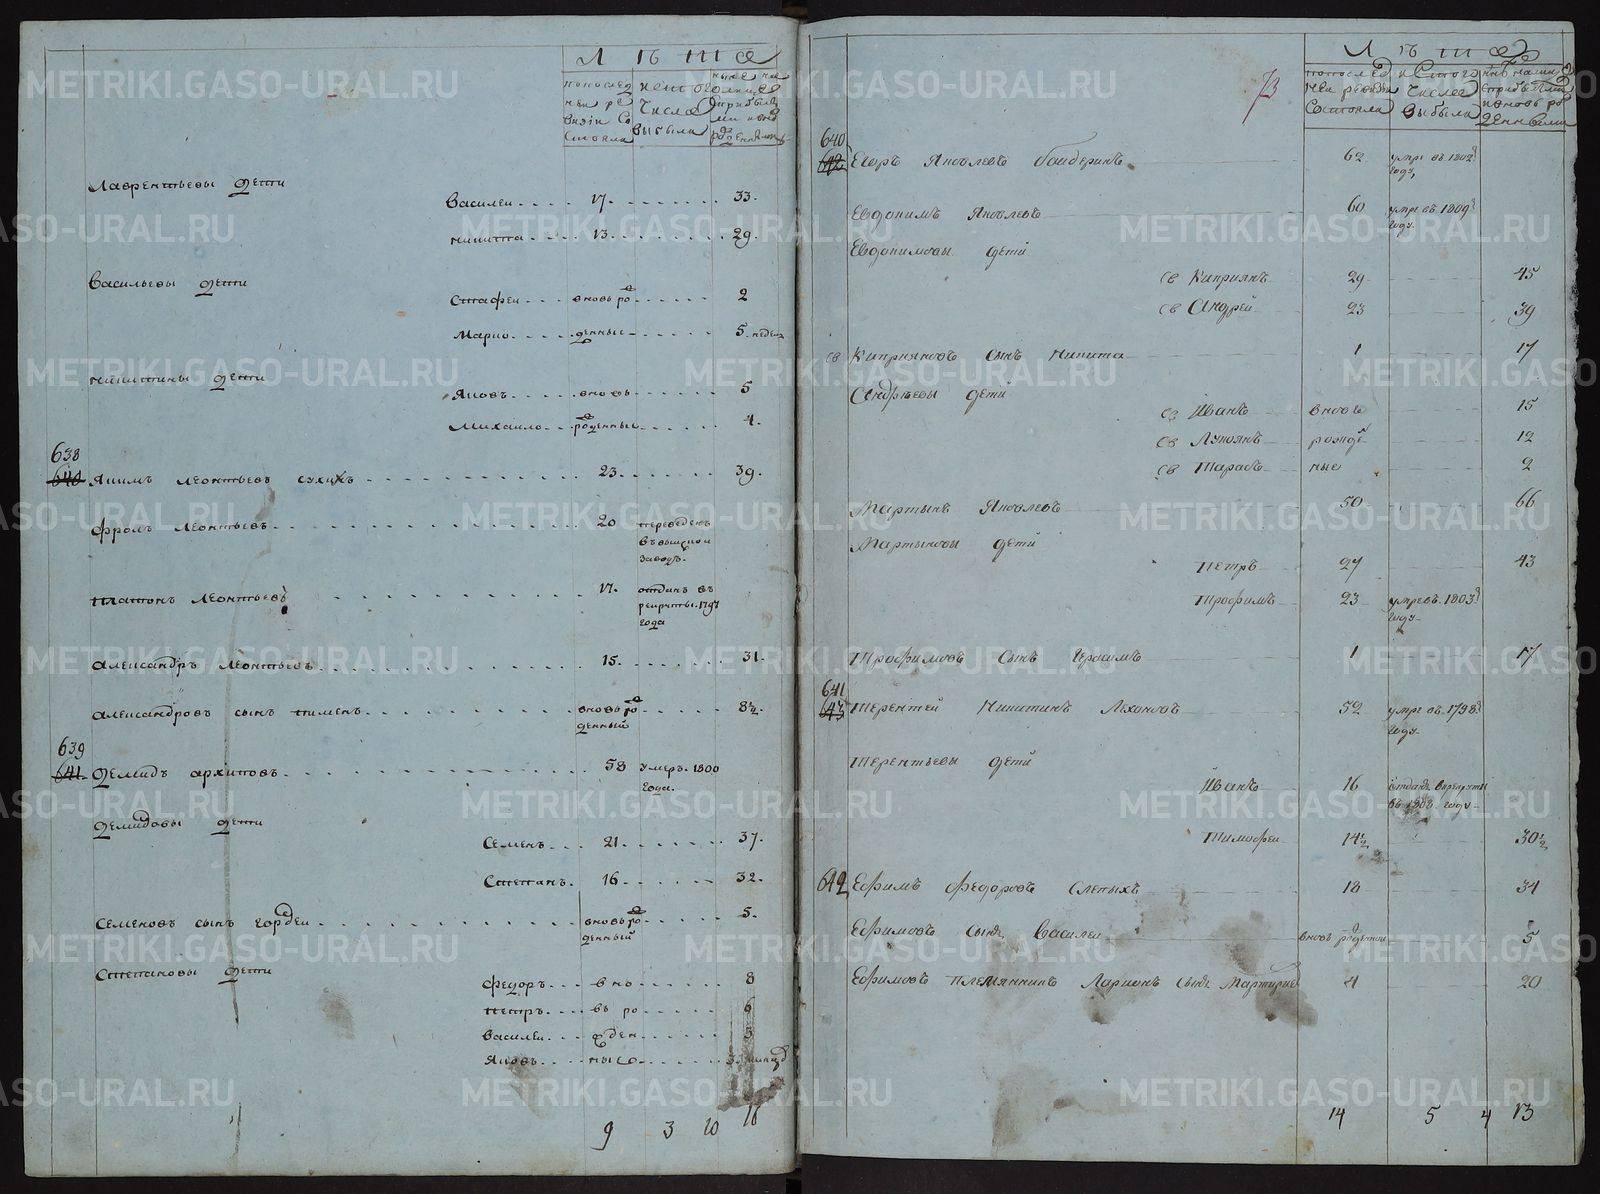 Лѣта
попослед ней ре визіи Со стояло
изтого числа выбыло
Лаврентьевы дети
Василеи 17. 33.
никита 13. 29.
Васильевы дети
Астафеи вновь ро 2
Марко денные 5 недел
никитины дети
Яковъ вновь 5
Михаило роденные 4.
638
640 Якимъ леонтьевъ сухихъ 23. 39.
фролъ леонтьевъ 20 переведенъ
завоdъ.
платонъ леонтьевъ 17. отданъ въ
рекруты. 1797
года
александръ леонтьевъ 15. 31.
александровъ сынъ пименъ вновь ро 8½.
денный
639
641 демидъ архиповъ 58 умеръ. 1800
года.
демидовы дети
Семенъ 21. 37.
Степанъ. 16. 32.
семеновъ сынъ гордеи вновь ро 5.
денный
Степановы дети
федоръ вно 8
петръ въ ро 6
василеи жден 3
Яковъ ные
9 3 10 16
Лѣта
73
попослед ней ревизіи Состояло
исътого числа выбыло
640
642 Егоръ Яковлевъ 62 умре въ 1802
году,
Евдокимъ Яковлевъ 60 умре въ 1809
году.
Евдокимовы дети
св Киприянъ 29 45
св Андрей 23 39
св Киприяновъ сынъ Никита 1 17
Андрѣевы дети
сз Иванъ вновь 15
св Лукоянъ рожде 12
св Тарасъ ные 2
Мартынъ Яковлевъ 50 66
Мартыновы дети
Петръ 27 43
Трофимъ 23 умре въ 1803
году
Трофимовъ Сынъ Герасимъ 1 17
641
643 Терентей Никитинъ Лехановъ 52 умре въ 1798
году
Терентьевы дети
Иванъ 16 отданъ врекруты
въ году
Тимофеи 14½ 30½
642 Ефимъ Федоровъ Слепыхъ 18 34
Ефимовъ сынъ Василеи вновь роденной 5
Ефимовъ племянникъ Ларионъ сынъ 4 20
14 5 4 13
METRIKI.GASO-URAL.RU